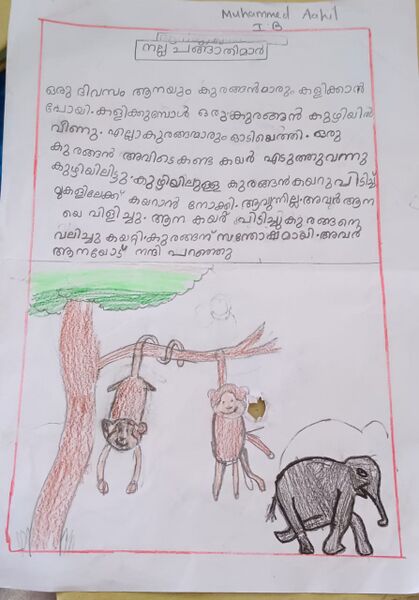 Muhammed Aahil
I B
നല്ല ചങ്ങാതിമാർ
ഒരു ദിവസം ആനയും കുരങ്ങൻമാരും കളിക്കാൻ
പോയി. കളിക്കുമ്പോൾ ഒരു കുരങ്ങൻ കുഴിയിൽ
വീണു. എല്ലാകുരങ്ങന്മാരും ഓടിയെത്തി. ഒരു
കുരങ്ങൻ അവിടെകണ്ട കയർ എടുത്തുവന്നു
കുഴിയിലിട്ടു. കുഴിയിലുള്ള കുരങ്ങൻകയറുപിടിച്ച്
മുകളിലേക്ക് കയറാൻ നോക്കി. ആവുന്നില്ല. അവർ ആന
യെ വിളിച്ചു. ആന കയർ പിടിച്ചുകുരങ്ങനെ
വലിച്ചു കയറ്റി. കുരങ്ങന് സന്തോഷമായി. അവർ
ആനയോട് നന്ദി പറഞ്ഞു